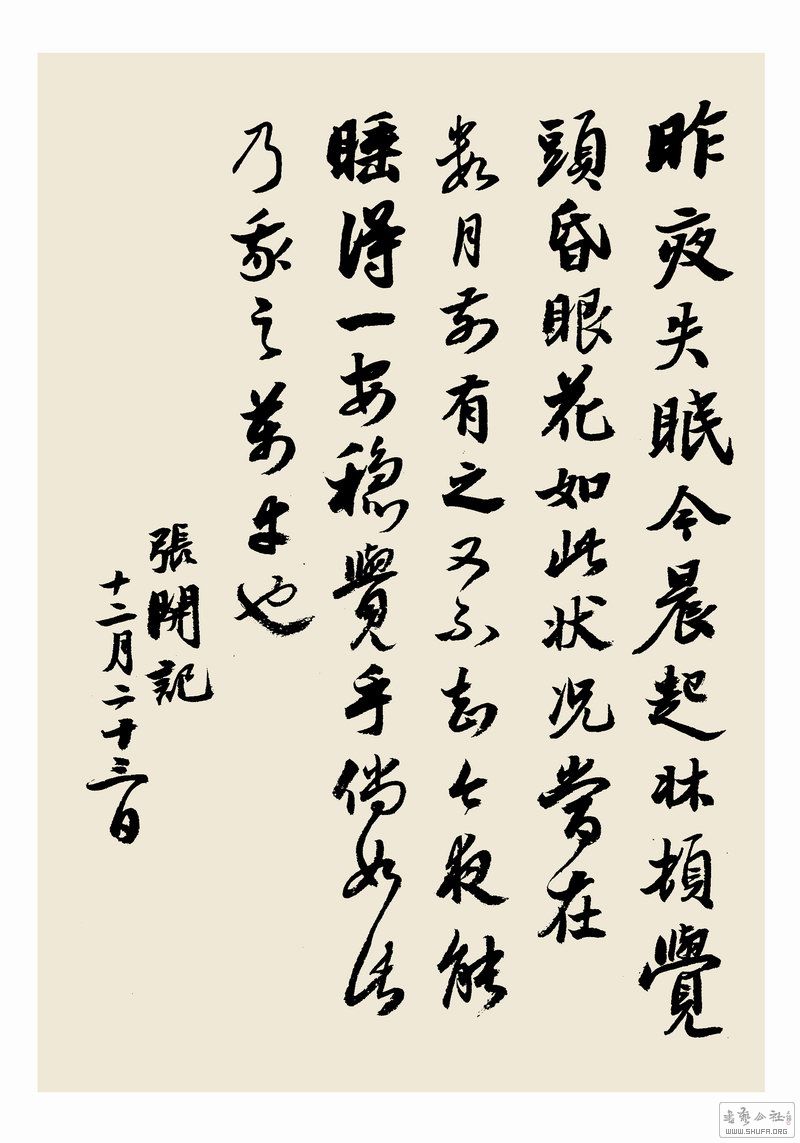 昨夜失眠今晨起牀頓覺
頭昏眼花如此状况嘗在
数月前有之又不知今夜能
睡得一安稳覺乎倘如
乃我之萬幸也
張開記
十二月二十三日
书艺公社
WWW.SHUFA.ORG